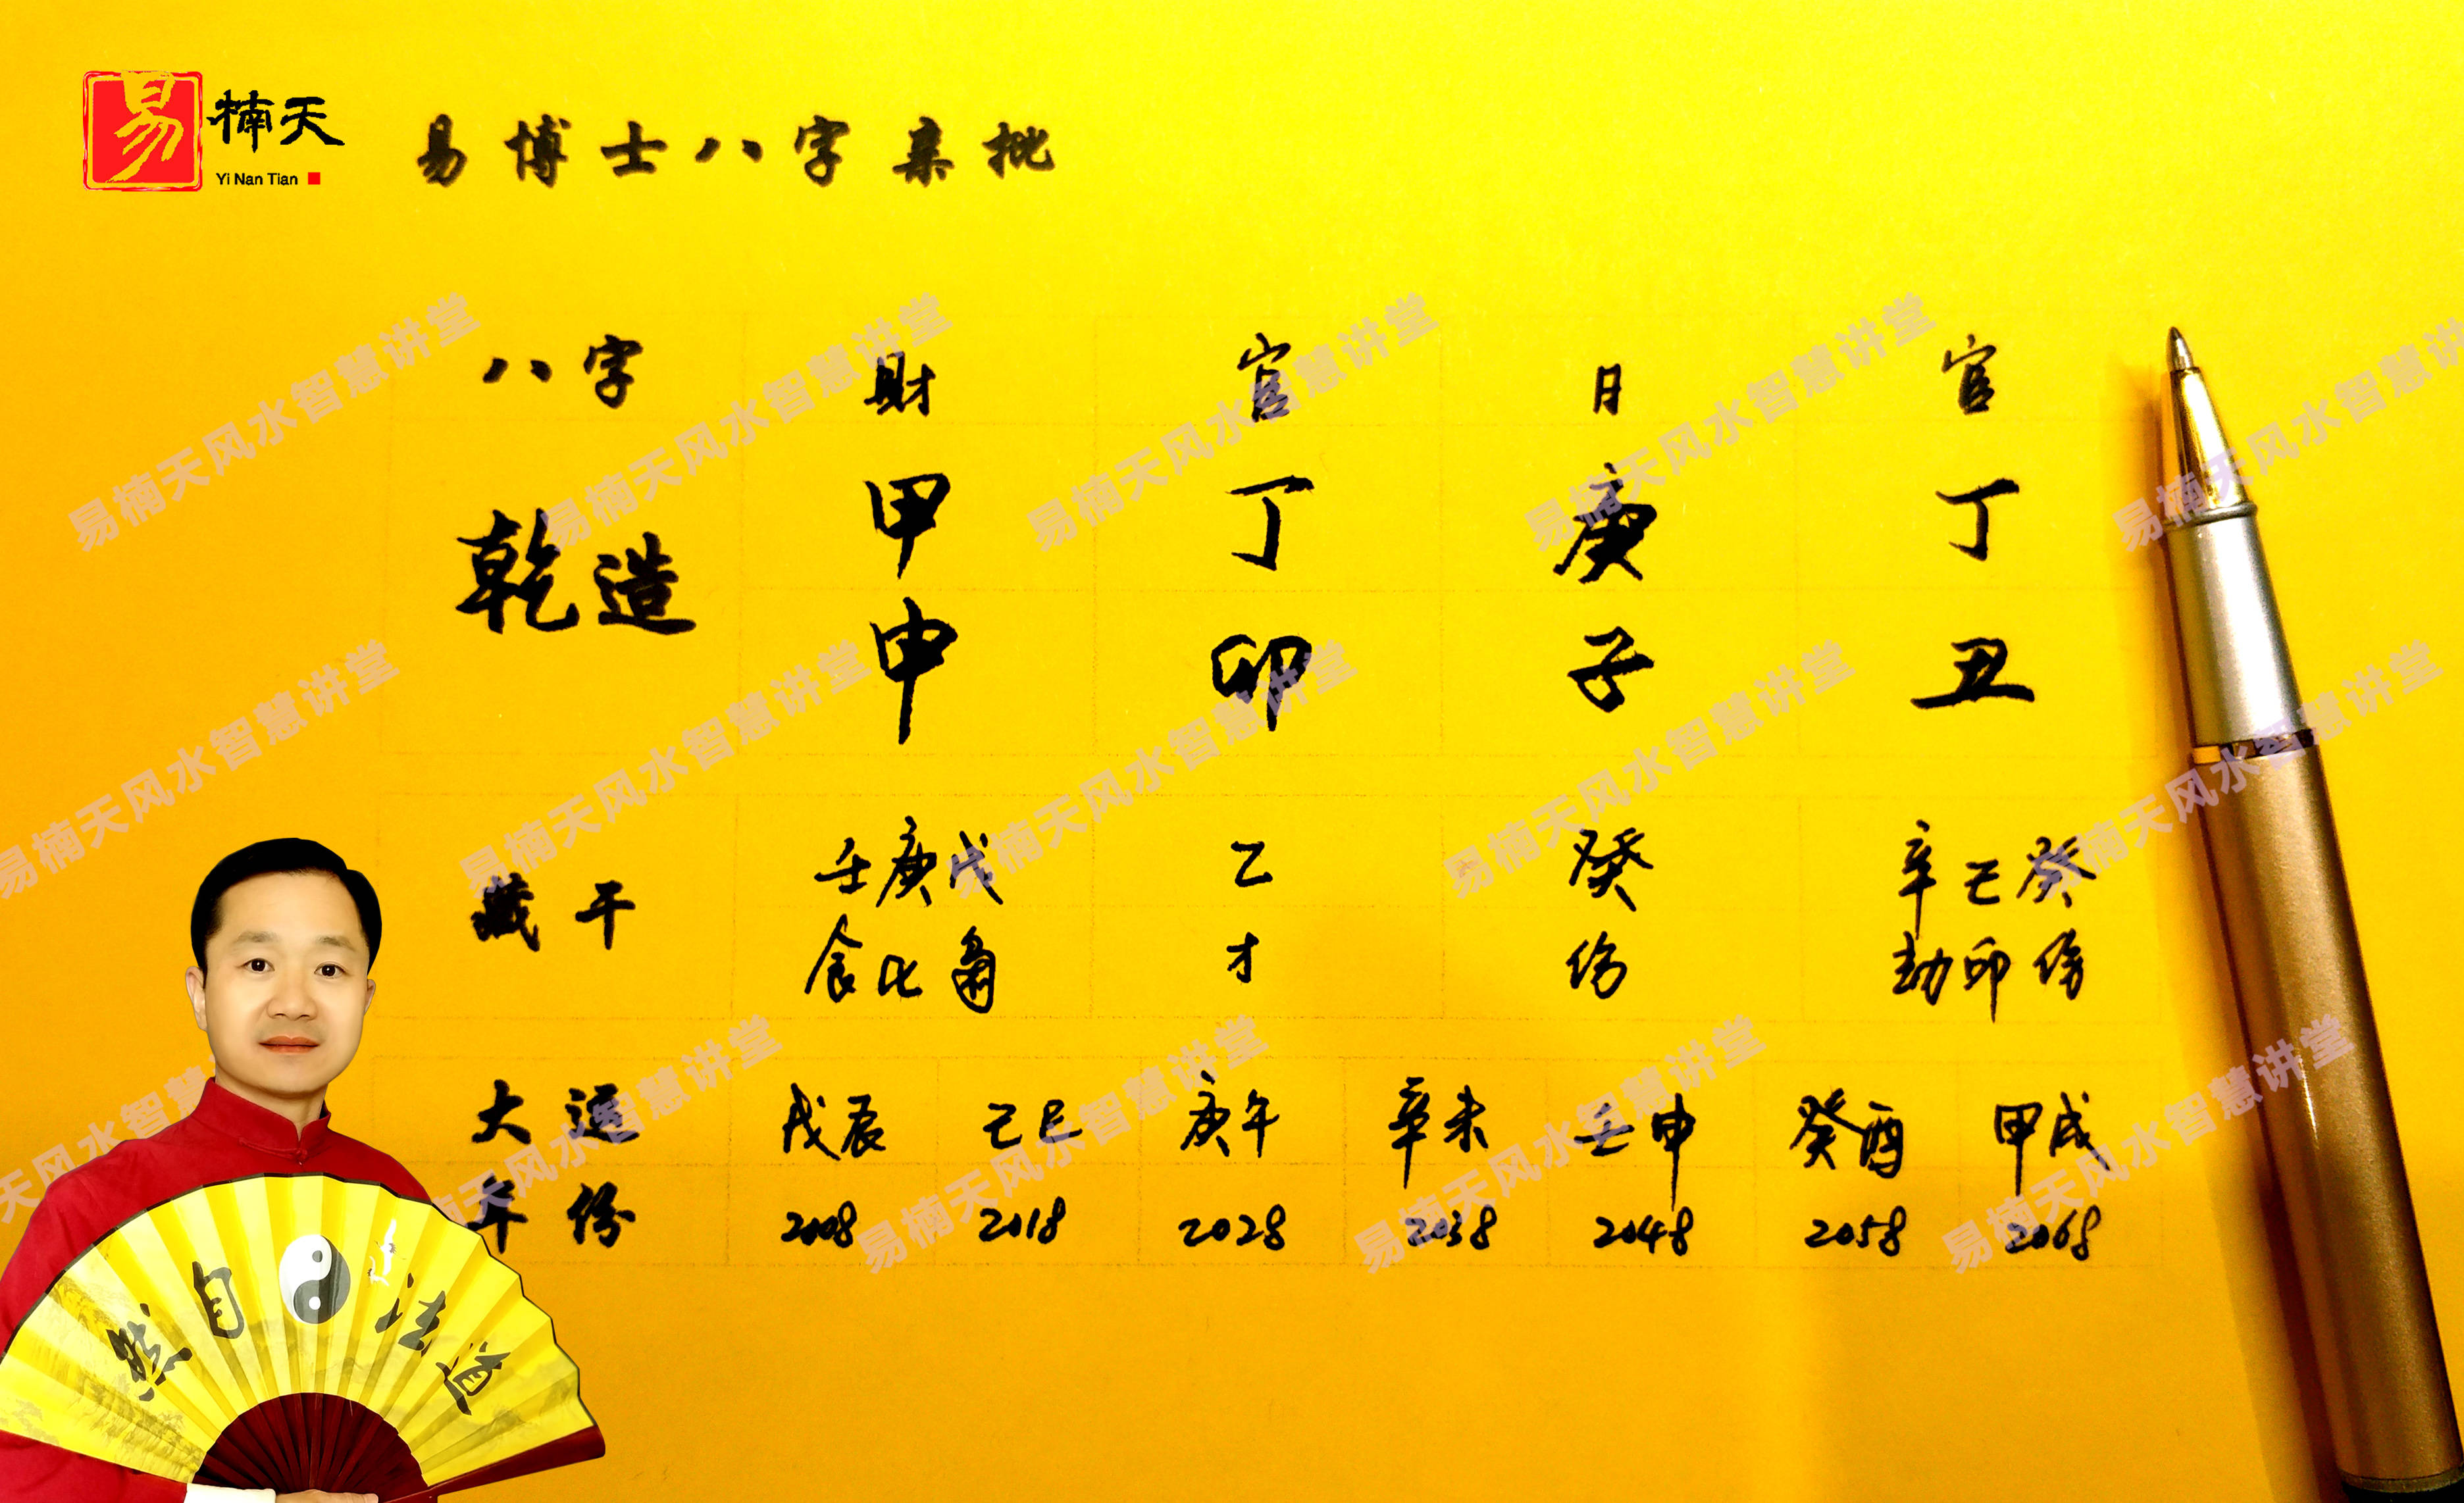 易 楠天
Yi Nan Tian
易博士八字亲批
八字 財 官 日 官
乾造 甲 丁 庚 丁
申 卯 子 丑
藏干 壬庚戊 乙 癸 辛己癸
食比枭 才 伤 劫印伤
大运 戊辰 己巳 庚午 辛未 壬申 癸酉 甲戌
年份 2008 2018 2028 2038 2048 2058 2068
然自法道
易楠天风水智慧讲堂